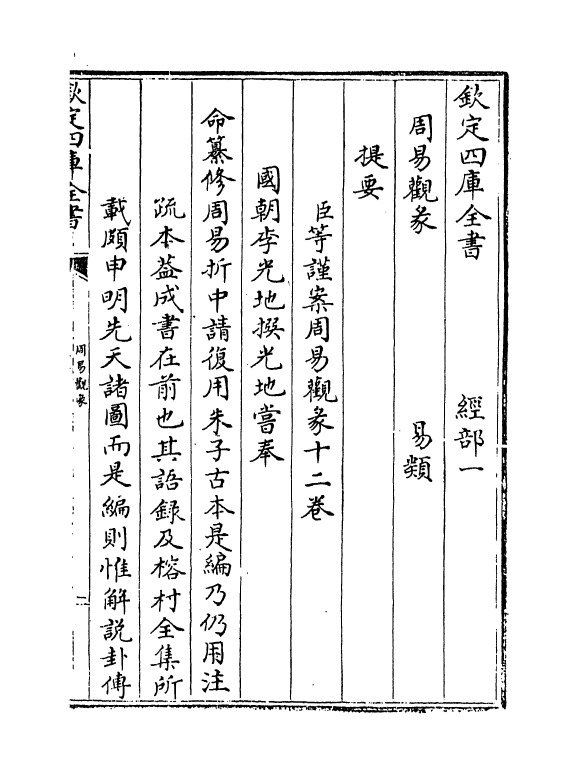 欽定四庫全書　經部一
周易觀彖　易類
提要
臣等謹案周易觀彖十二卷
國朝李光地撰光地嘗奉
命纂修周易折中請復用朱子古本是編乃仍用注
疏本葢成書在前也其語録及榕村全集所
載頗申明先天諸圖而是編則惟解説卦傳
欽定四庫全書
周易觀彖